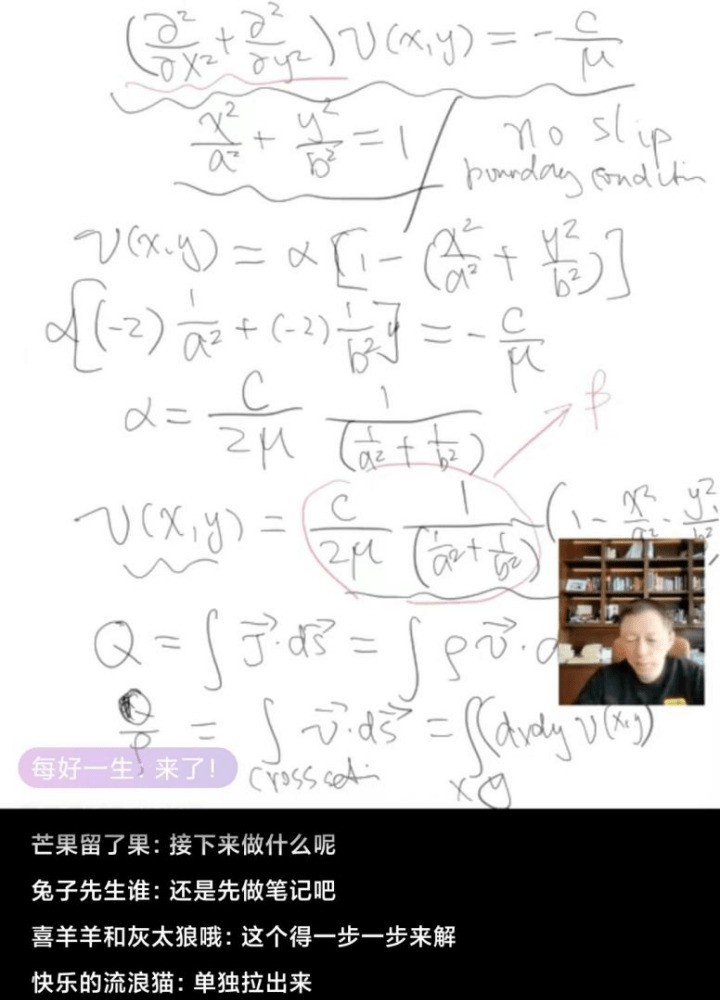 (∂²/∂x² + ∂²/∂y²) v(x,y) = -c/μ
x²/a² + y²/b² = 1 / no slip
boundary condition
v(x,y) = α [1 - (x²/a² + y²/b²)]
α[(-2) 1/a² + (-2) 1/b²] = -c/μ
α = C/2μ 1/(1/a² + 1/b²)
β
v(x,y) = C/2μ 1/(1/a² + 1/b²) (1 - x²/a² - y²/b²
Q = ∫ J⃗·ds⃗ = ∫ ρ v⃗·
Q/ρ = ∫ v⃗·ds⃗ = ∫∫ dxdy v(x,y)
x y
每好一生, 来了!
芒果留了果: 接下来做什么呢
兔子先生谁: 还是先做笔记吧
喜羊羊和灰太狼哦: 这个得一步一步来解
快乐的流浪猫: 单独拉出来